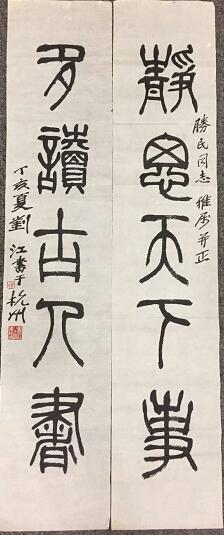 勝民同志雅屬并正
靜思天下事
多讀古人書
丁亥夏劉江書于杭州